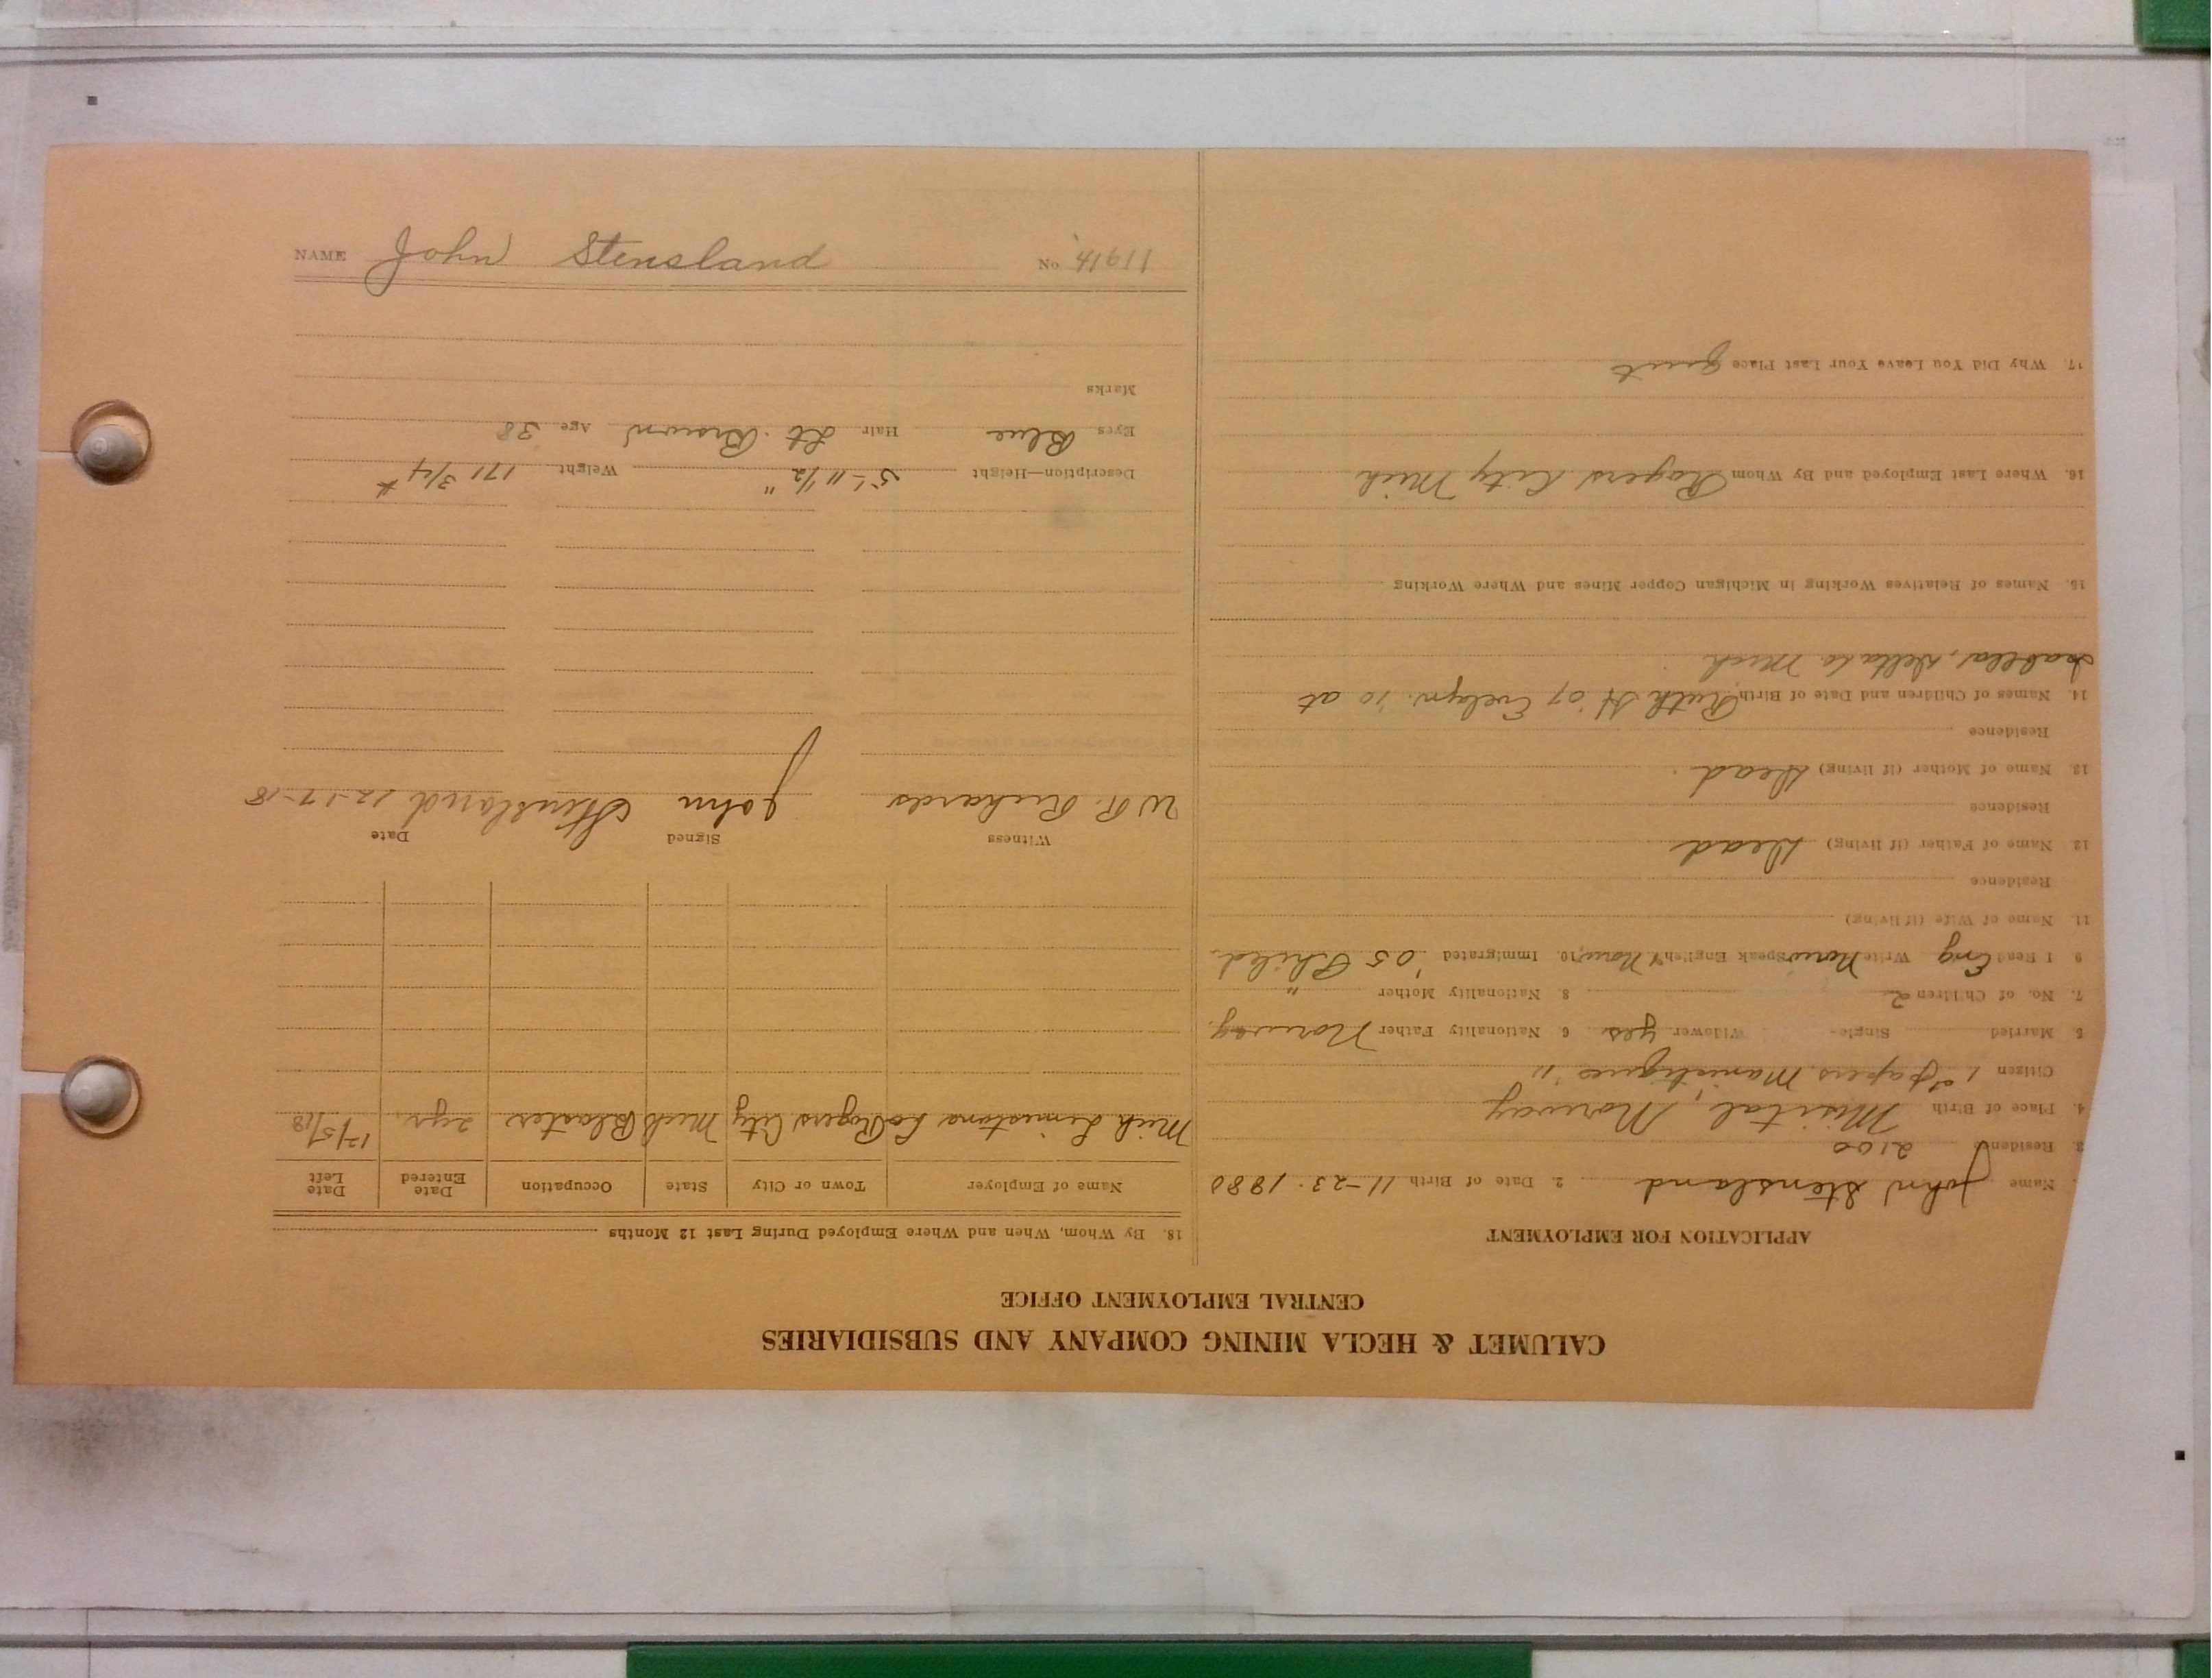 CALUMET & HECLA MINING COMPANY AND SUBSIDIARIES
CENTRAL EMPLOYMENT OFFICE
APPLICATION FOR EMPLOYMENT
Name John Stensland 2. Date of Birth 11-23-1880
3. Residence 2100
4. Place of Birth Norway
Citizen 1st papers '11
5. Married Single- Widower yes 6 Nationality Father Norway.
7. No. of Children 2 8 Nationality Mother "
9 I Read Eng Write Norw Speak English & Norw 10. Immigrated '05 Phild.
11. Name of Wife (if living)
Residence
12 Name of Father (if living) Dead
Residence
13. Name of Mother (if living) Dead.
Residence
14. Names of Children and Date of Birth Ruth H '07 Evelyn. '10 at
Isabella, Delta Co Mich
15. Names of Relatives Working in Michigan Copper Mines and Where Working
16. Where Last Employed and By Whom Rogers City Mich
17. Why Did You Leave Your Last Place quit
18. By Whom, When and Where Employed During Last 12 Months
Name of Employer Town or City State Occupation Date Entered Date Left
Mich Limestone Co Rogers City Mich Blaster 2 yr. 12/5/18
Witness Signed Date
W. R. Richards John Stensland 12-17-18
Description—Height 5'-11 1/2" Weight 171 3/4 #
Eyes Blue Hair Lt. Brown Age 38
Marks
NAME John Stensland No. 11914